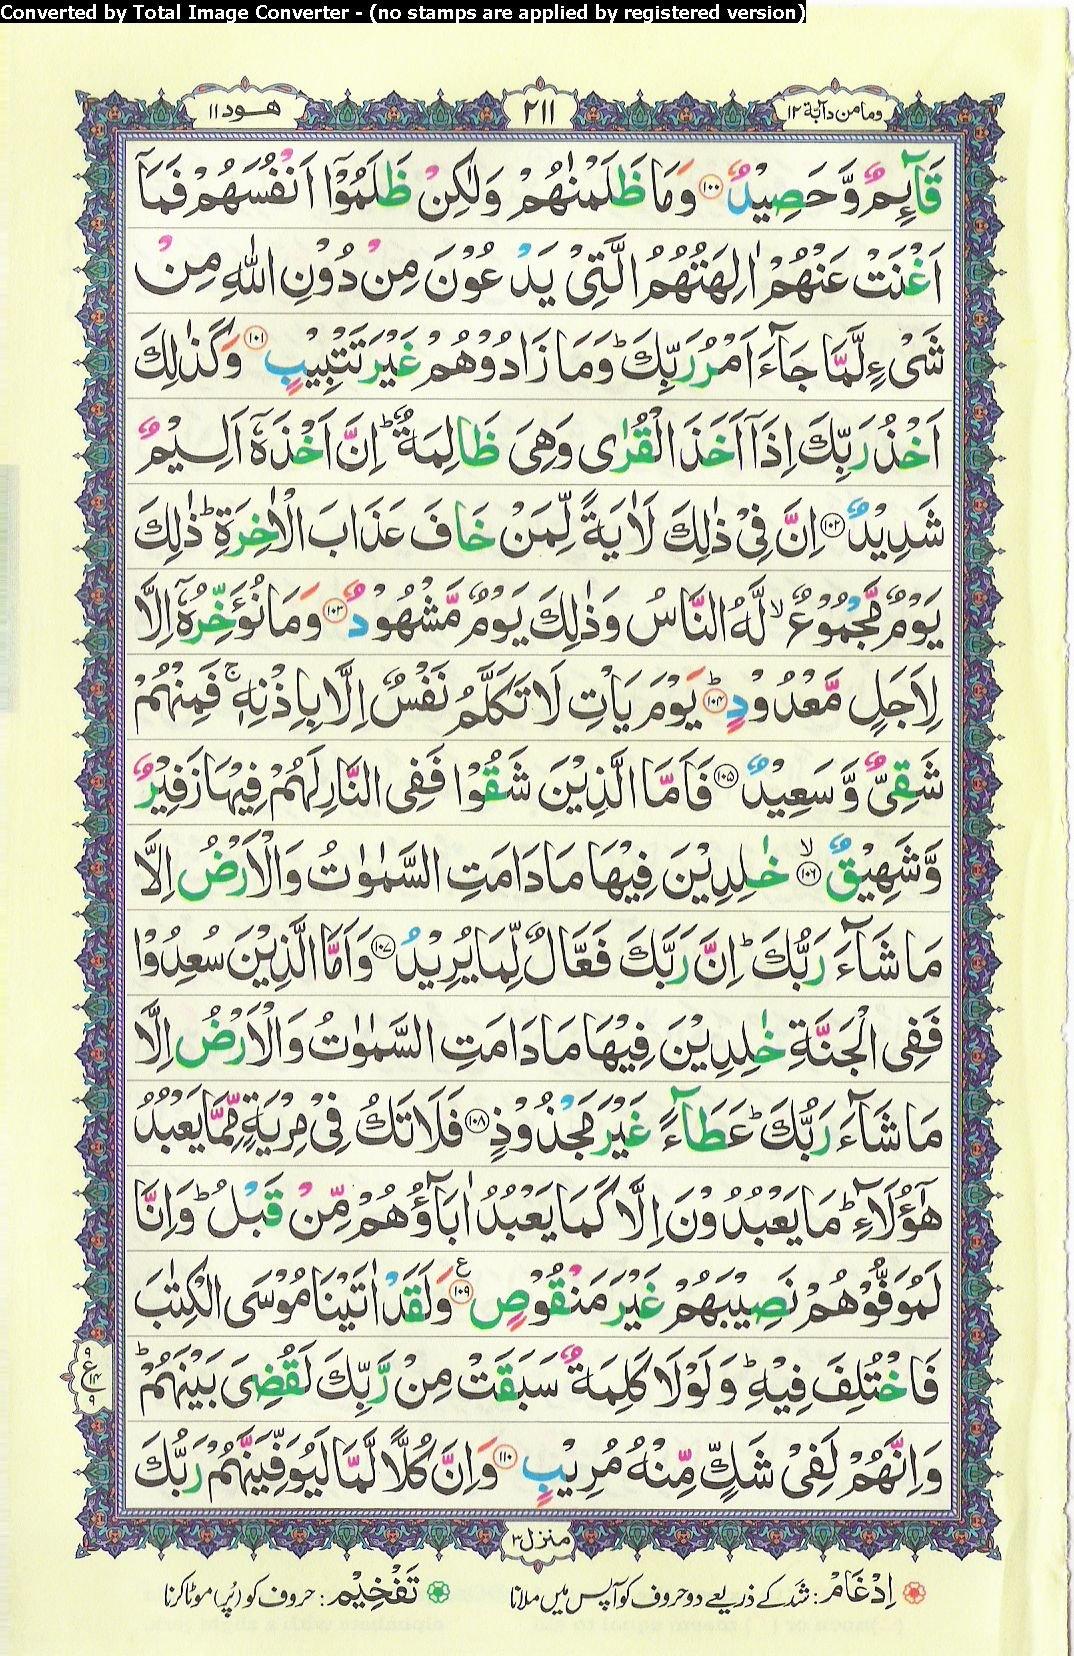 Converted by Total Image Converter - (no stamps are applied by registered version)
وما من دآبّة ١٢
٢١١
هود ١١
قَآئِمٌ وَّحَصِیْدٌ ﴿۱۰۰﴾ وَمَا ظَلَمْنٰهُمْ وَلٰكِنْ ظَلَمُوْۤا اَنْفُسَهُمْ فَمَاۤ
اَغْنَتْ عَنْهُمْ اٰلِهَتُهُمُ الَّتِیْ یَدْعُوْنَ مِنْ دُوْنِ اللّٰهِ مِنْ
شَیْءٍ لَّمَّا جَآءَ اَمْرُ رَبِّكَ ؕ وَمَا زَادُوْهُمْ غَیْرَ تَتْبِیْبٍ ﴿۱۰۱﴾ وَكَذٰلِكَ
اَخْذُ رَبِّكَ اِذَاۤ اَخَذَ الْقُرٰی وَهِیَ ظَالِمَةٌ ؕ اِنَّ اَخْذَهٗۤ اَلِیْمٌ
شَدِیْدٌ ﴿۱۰۲﴾ اِنَّ فِیْ ذٰلِكَ لَاٰیَةً لِّمَنْ خَافَ عَذَابَ الْاٰخِرَةِ ؕ ذٰلِكَ
یَوْمٌ مَّجْمُوْعٌ ۙ لَّهُ النَّاسُ وَذٰلِكَ یَوْمٌ مَّشْهُوْدٌ ﴿۱۰۳﴾ وَمَا نُؤَخِّرُهٗۤ اِلَّا
لِاَجَلٍ مَّعْدُوْدٍ ؕ﴿۱۰۴﴾ یَوْمَ یَاْتِ لَا تَكَلَّمُ نَفْسٌ اِلَّا بِاِذْنِهٖ ۚ فَمِنْهُمْ
شَقِیٌّ وَّسَعِیْدٌ ﴿۱۰۵﴾ فَاَمَّا الَّذِیْنَ شَقُوْا فَفِی النَّارِ لَهُمْ فِیْهَا زَفِیْرٌ
وَّشَهِیْقٌ ۙ﴿۱۰۶﴾ خٰلِدِیْنَ فِیْهَا مَا دَامَتِ السَّمٰوٰتُ وَالْاَرْضُ اِلَّا
مَا شَآءَ رَبُّكَ ؕ اِنَّ رَبَّكَ فَعَّالٌ لِّمَا یُرِیْدُ ﴿۱۰۷﴾ وَاَمَّا الَّذِیْنَ سُعِدُوْا
فَفِی الْجَنَّةِ خٰلِدِیْنَ فِیْهَا مَا دَامَتِ السَّمٰوٰتُ وَالْاَرْضُ اِلَّا
مَا شَآءَ رَبُّكَ ؕ عَطَآءً غَیْرَ مَجْذُوْذٍ ﴿۱۰۸﴾ فَلَا تَكُ فِیْ مِرْیَةٍ مِّمَّا یَعْبُدُ
هٰۤؤُلَآءِ ؕ مَا یَعْبُدُوْنَ اِلَّا كَمَا یَعْبُدُ اٰبَآؤُهُمْ مِّنْ قَبْلُ ؕ وَاِنَّا
لَمُوَفُّوْهُمْ نَصِیْبَهُمْ غَیْرَ مَنْقُوْصٍ ﴿۱۰۹﴾ع وَلَقَدْ اٰتَیْنَا مُوْسَی الْكِتٰبَ
فَاخْتُلِفَ فِیْهِ ؕ وَلَوْلَا كَلِمَةٌ سَبَقَتْ مِنْ رَّبِّكَ لَقُضِیَ بَیْنَهُمْ ؕ
٩ ع ١٤ ٩
وَاِنَّهُمْ لَفِیْ شَكٍّ مِّنْهُ مُرِیْبٍ ﴿۱۱۰﴾ وَاِنَّ كُلًّا لَّمَّا لَیُوَفِّیَنَّهُمْ رَبُّكَ
منزل ٣
اِدْغَامْ: شَد کے ذریعے دو حروف کو آپس میں ملانا تَفْخِیْمْ: حروف کو (پُر) موٹا کرنا